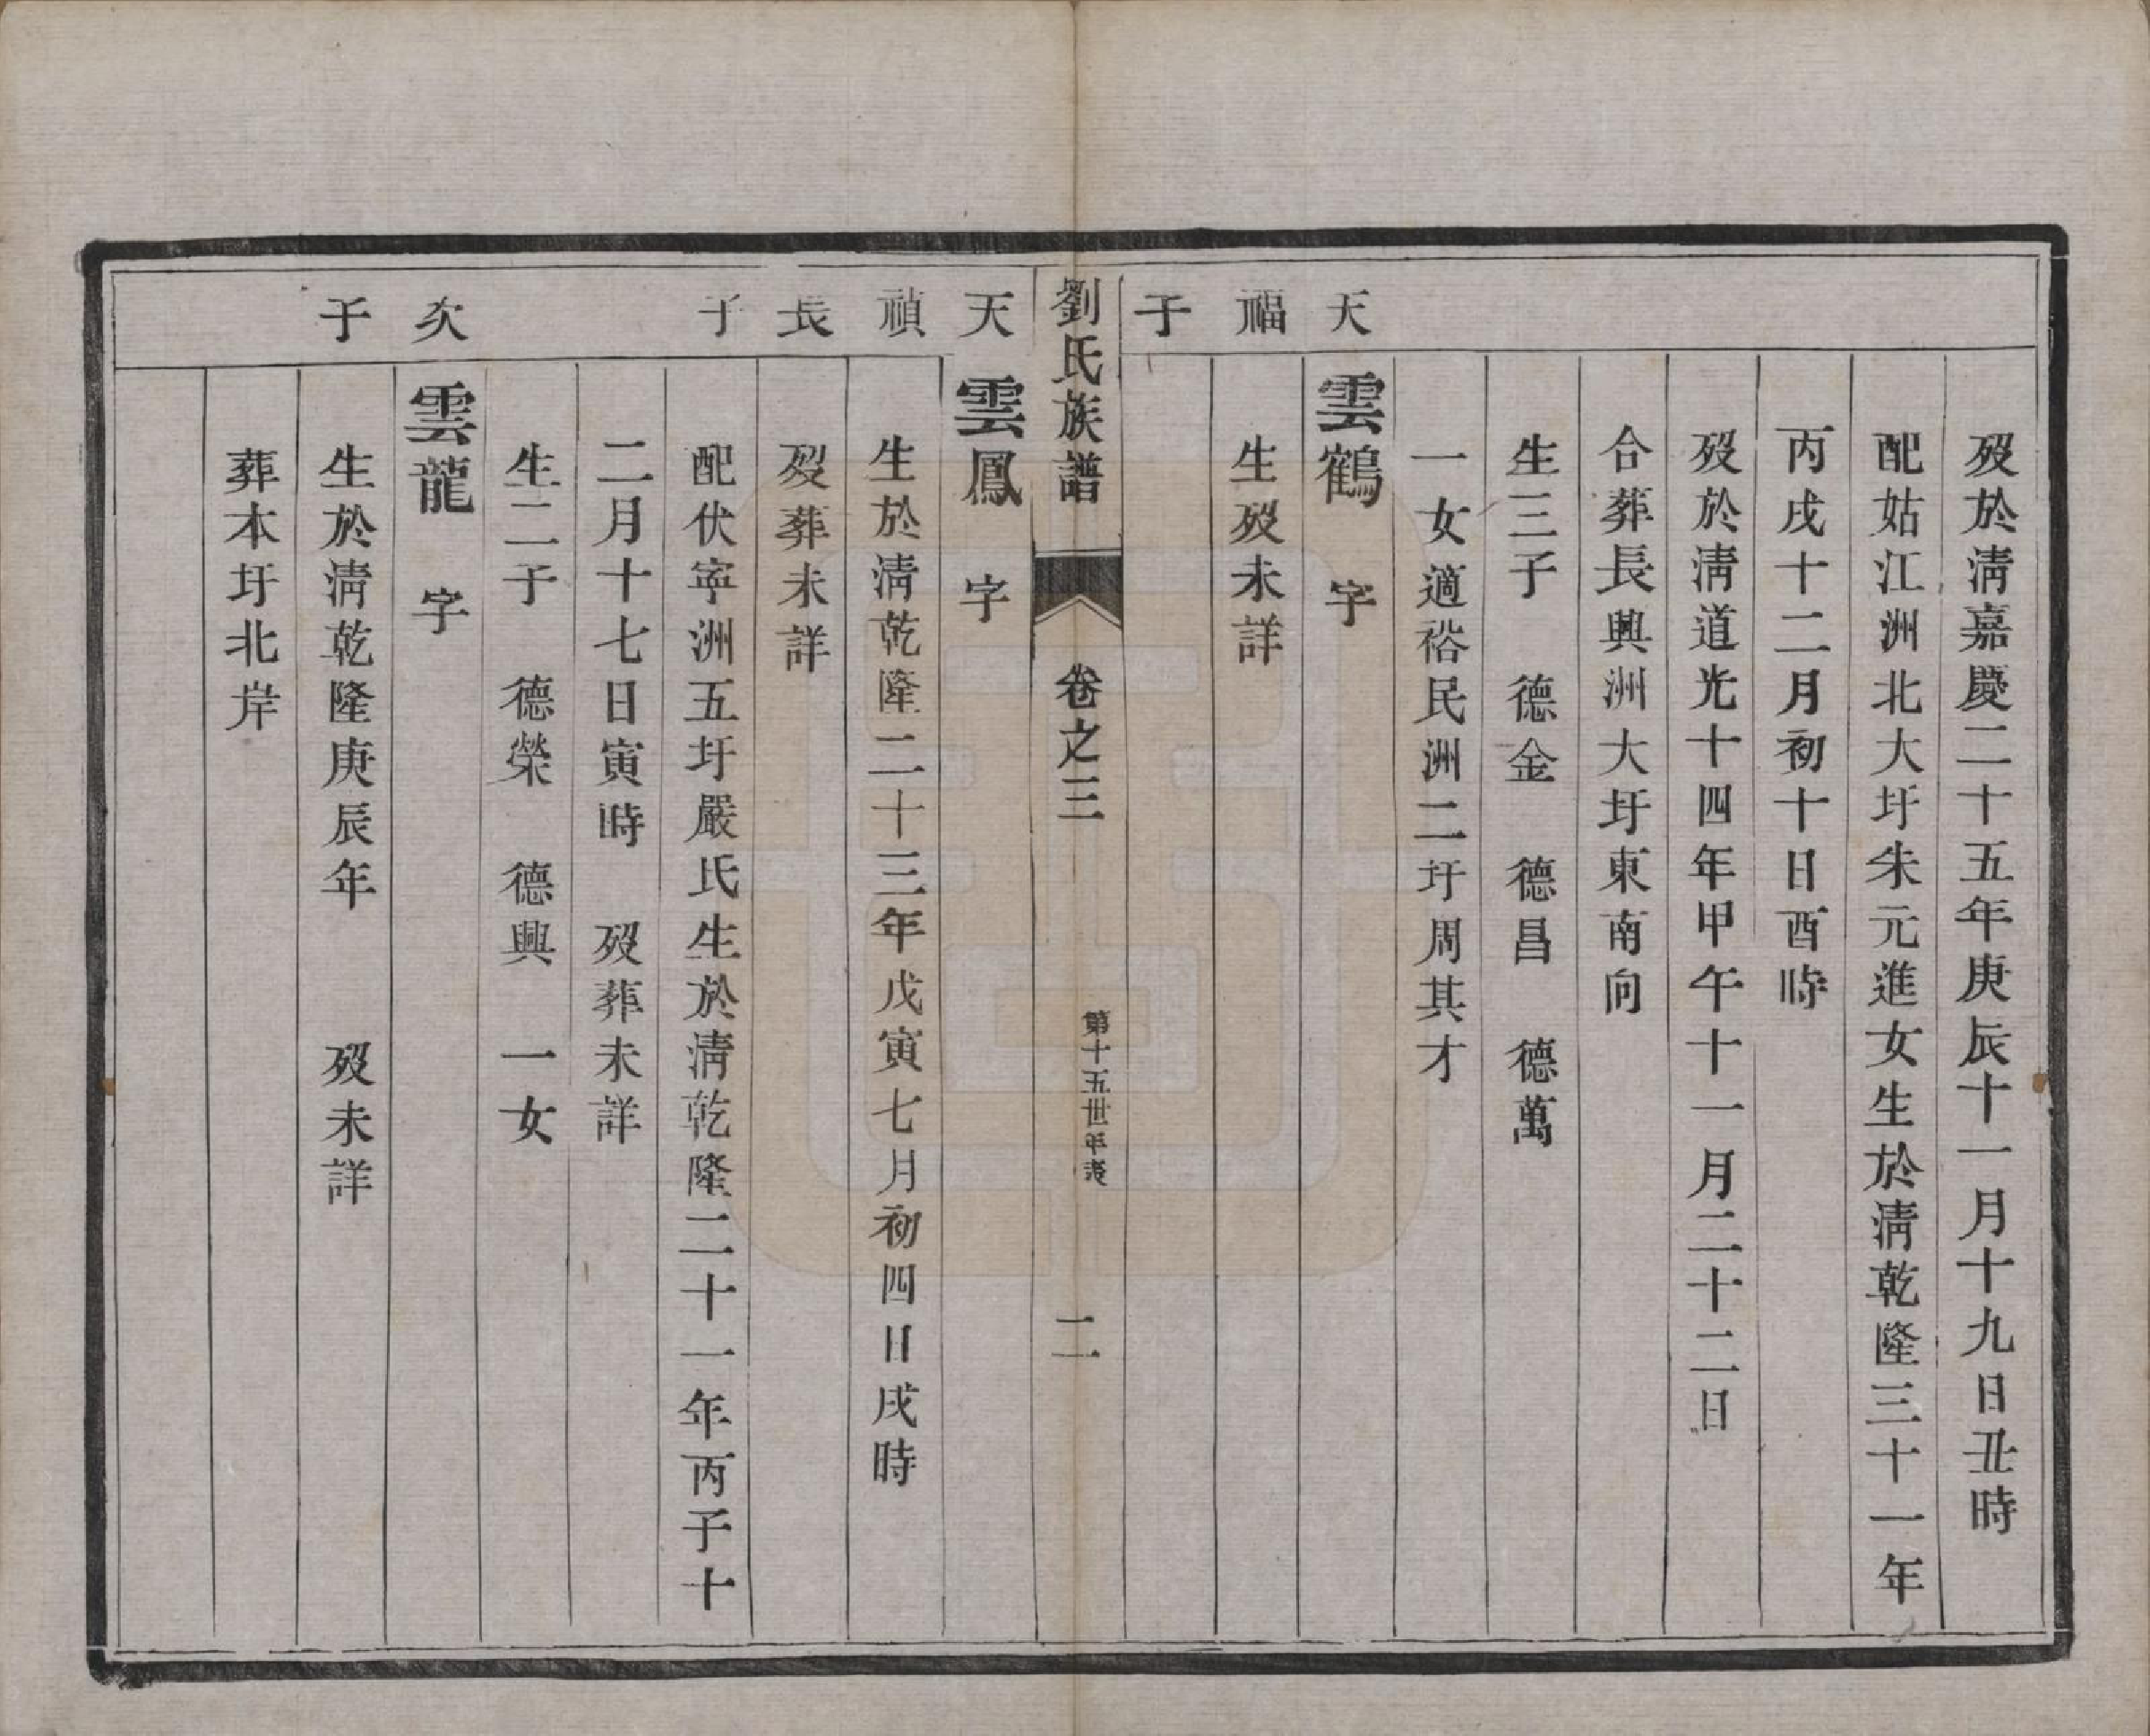 歿於清嘉慶二十五年庚辰十一月十九日丑時
配姑江洲北大圩朱元進女生於清乾隆三十一年
丙戌十二月初十日酉時
歿於清道光十四年甲午十一月二十二日
合葬長興洲大圩東南向
生三子　德金　德昌　德萬
一女適裕民洲二圩周其才
天福子
雲鶴　字
生歿未詳
劉氏族譜　卷之三　第十五世年表　二
天禎長子
雲鳳　字
生於清乾隆二十三年戊寅七月初四日戌時
歿葬未詳
配伏寧洲五圩嚴氏生於清乾隆二十一年丙子十
二月十七日寅時　歿葬未詳
生二子　德榮　德興　一女
次子
雲龍　字
生於清乾隆庚辰年　歿未詳
葬本圩北岸